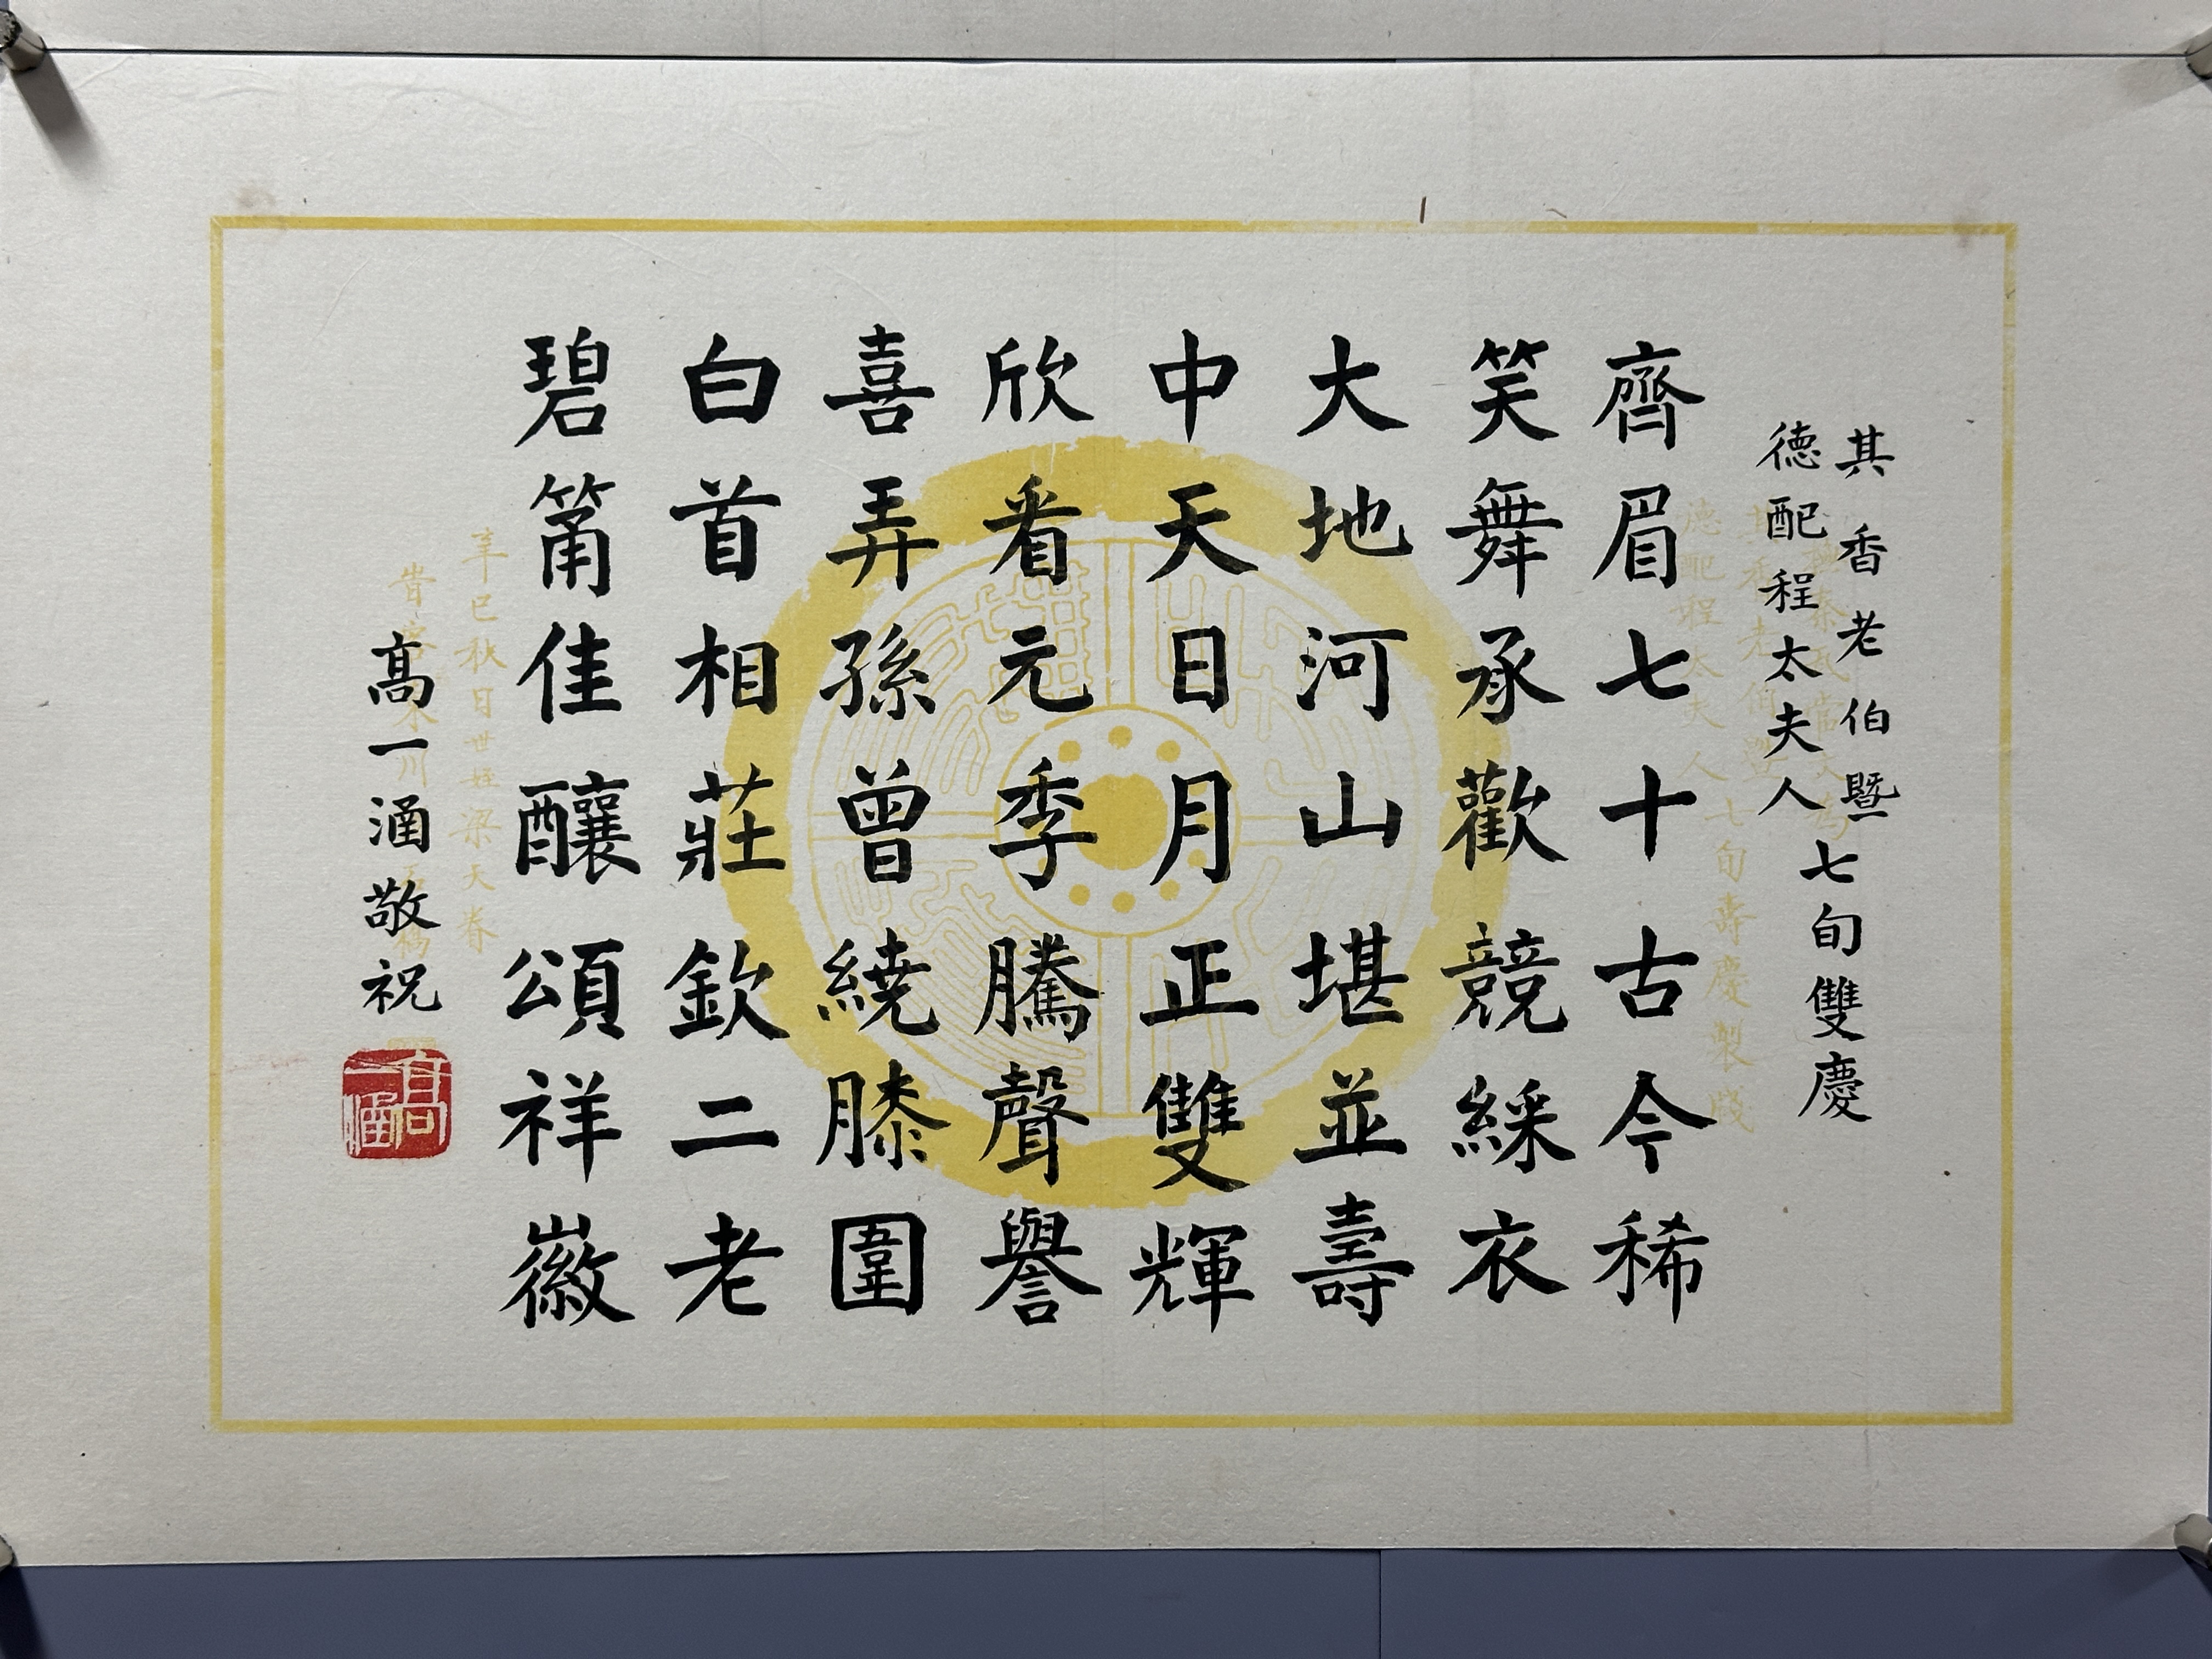 其香老伯暨
德配程太夫人
七旬雙慶
齊眉七十古今稀
笑舞承歡競綵衣
大地河山堪並壽
中天日月正雙輝
欣看元季騰聲譽
喜弄孫曾繞膝圍
白首相莊欽二老
碧筩佳釀頌祥徽
高一涵敬祝
高一涵
德配程太夫人
七旬壽慶製牋
辛巳秋日世姪梁天眷